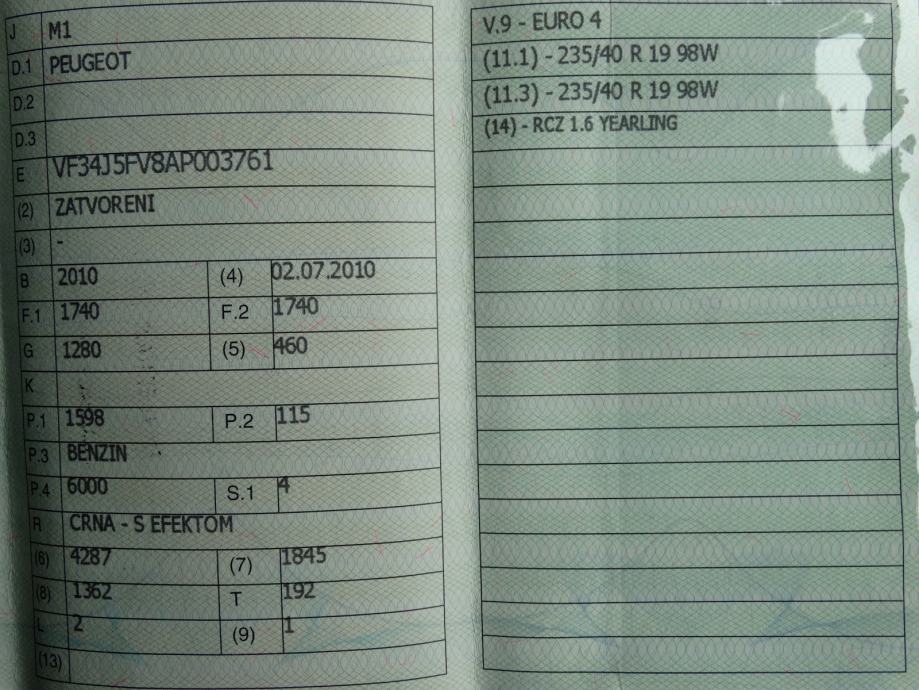 J M1
D.1 PEUGEOT
D.2
D.3
E VF34J5FV8AP003761
(2) ZATVORENI
(3) -
B 2010 (4) 02.07.2010
F.1 1740 F.2 1740
G 1280 (5) 460
K
P.1 1598 P.2 115
P.3 BENZIN
P.4 6000 S.1 4
R CRNA - S EFEKTOM
(6) 4287 (7) 1845
(8) 1362 T 192
L 2 (9) 1
(13)
V.9 - EURO 4
(11.1) - 235/40 R 19 98W
(11.3) - 235/40 R 19 98W
(14) - RCZ 1.6 YEARLING